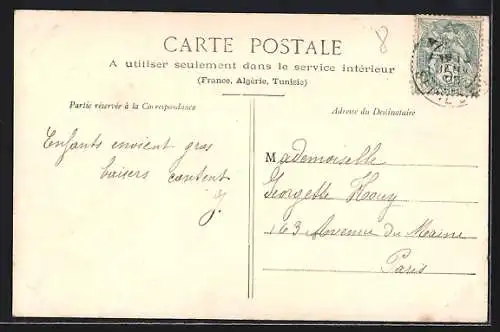 CARTE POSTALE
8
A utiliser seulement dans le service intérieur
(France, Algérie, Tunisie)
Partie réservée à la Correspondance
Adresse du Destinataire
Enfants envoient gros
baisers content
Mademoiselle
Georgette Houy
163 Avenue du Maine
Paris